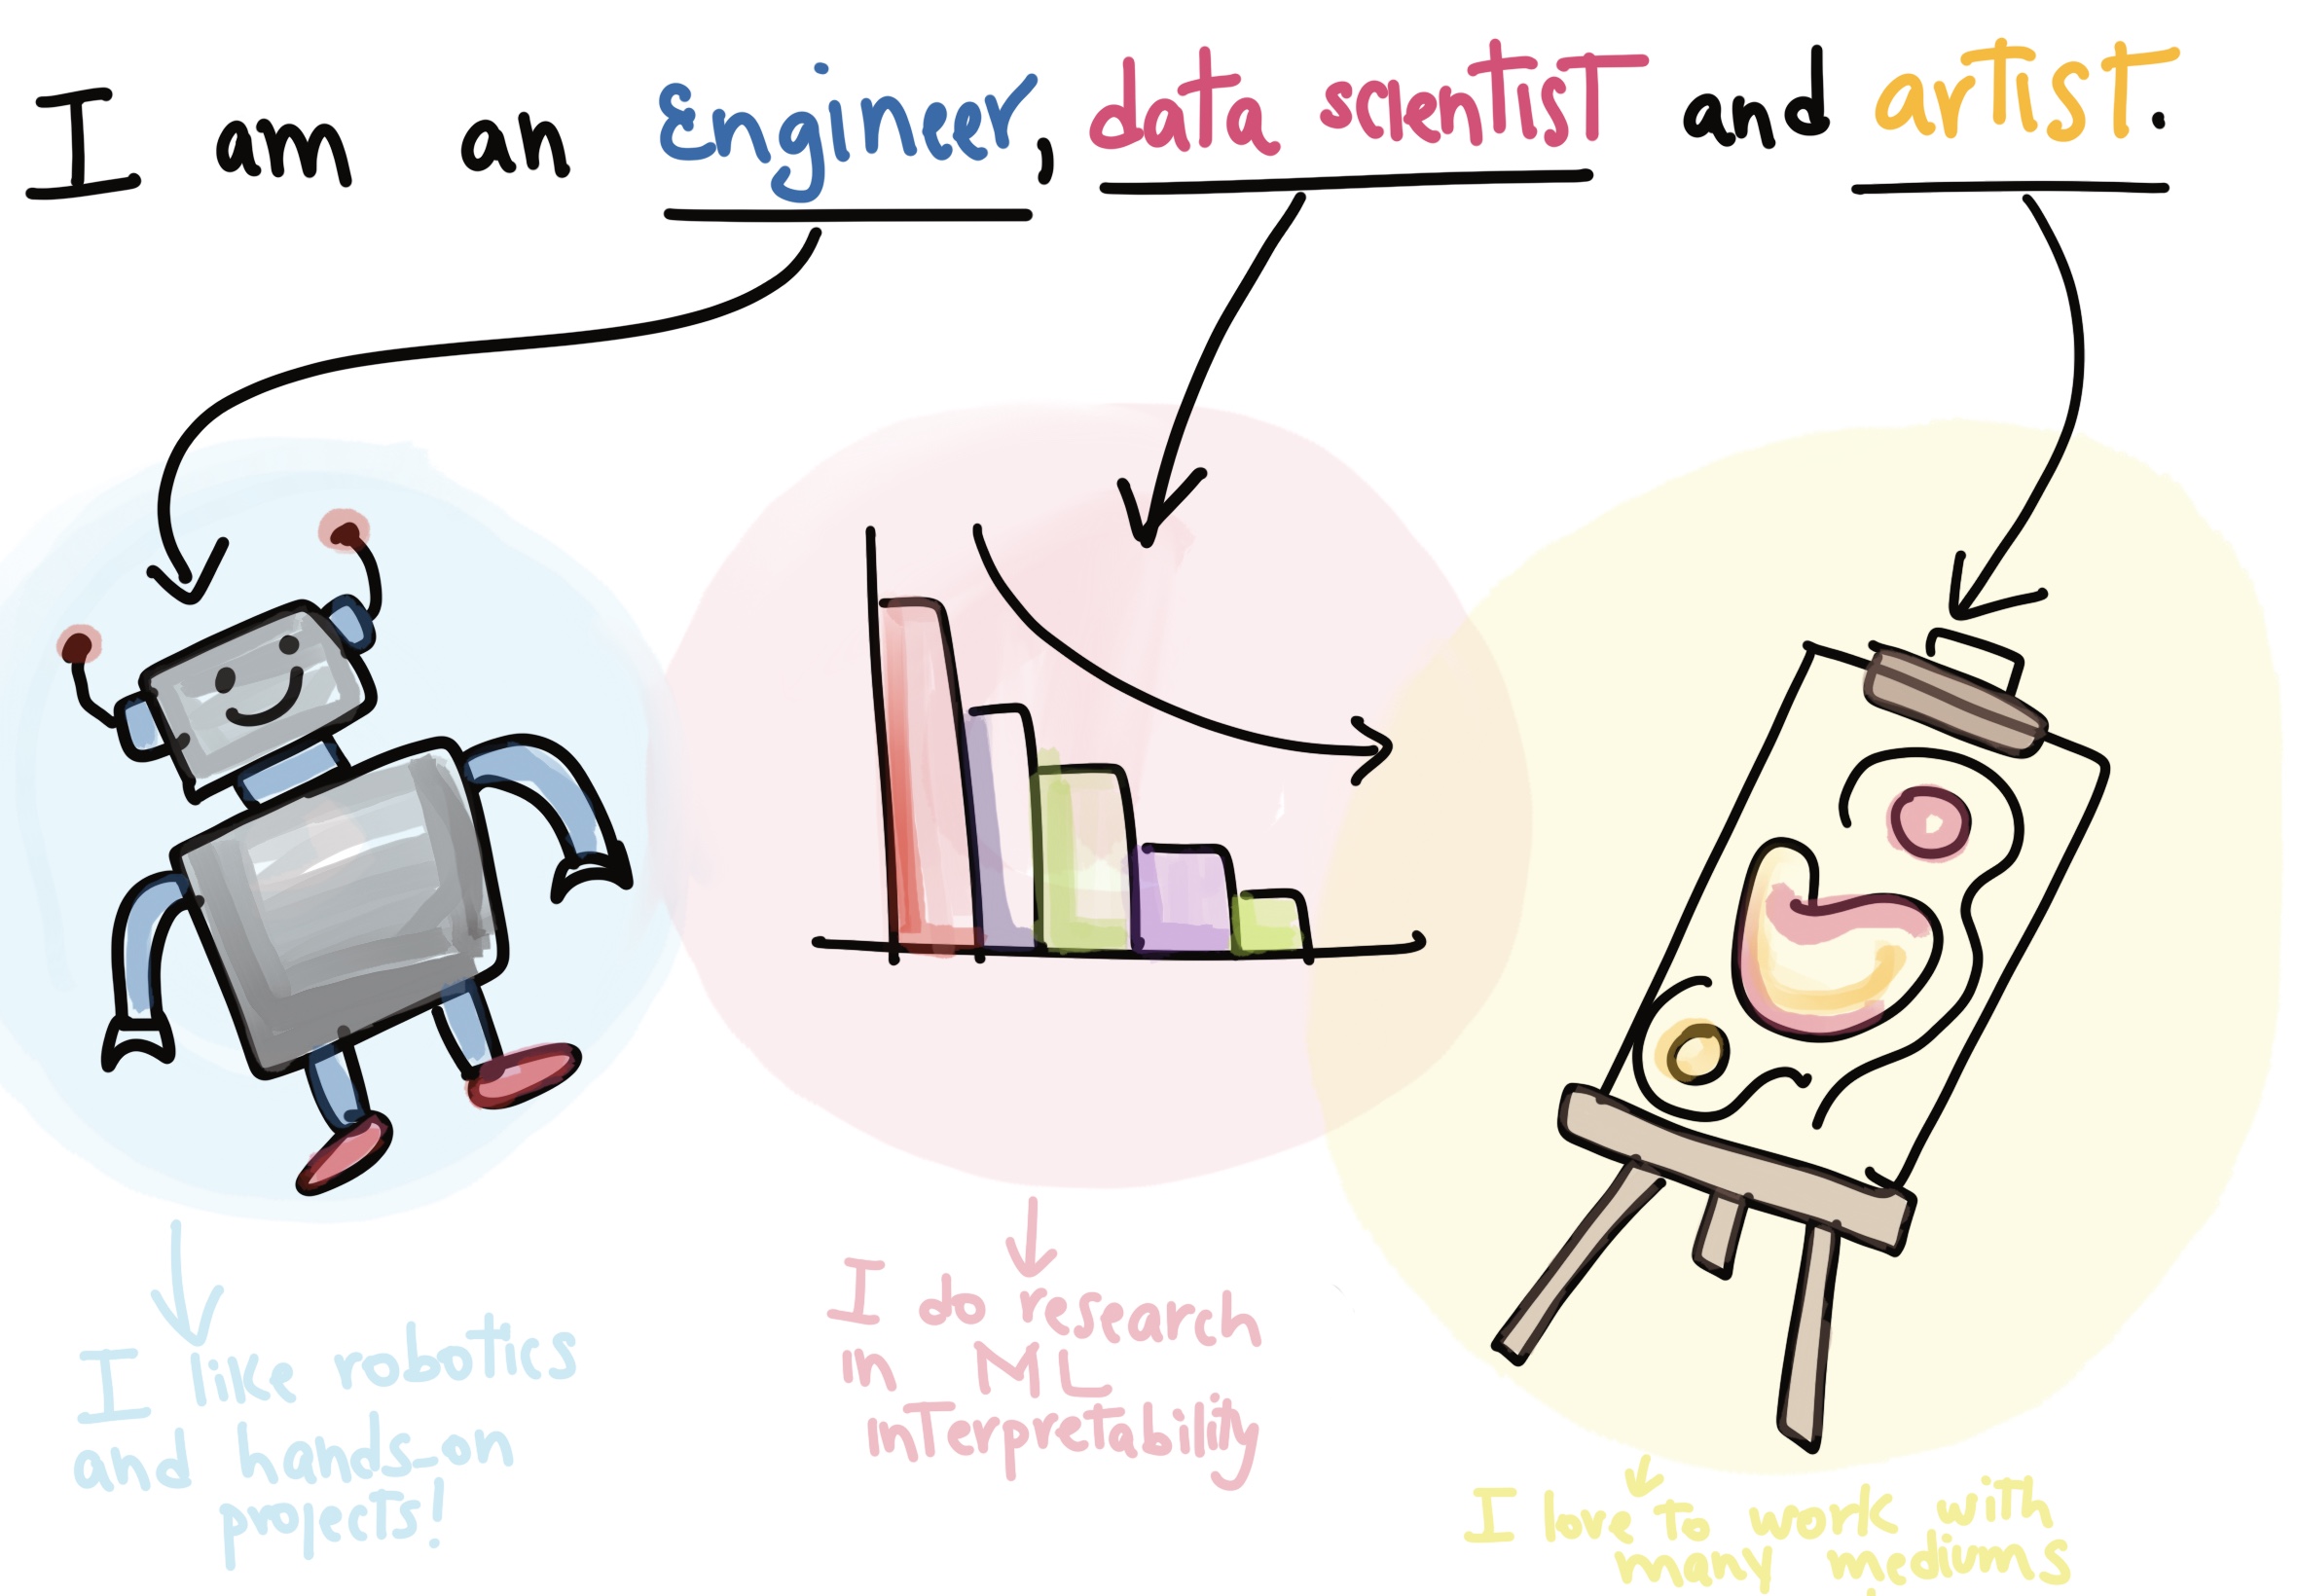 I am an Engineer, data scientist and artist.
I like robotics
and hands-on
projects!
I do research
in ML
interpretability
I love to work with
many mediums